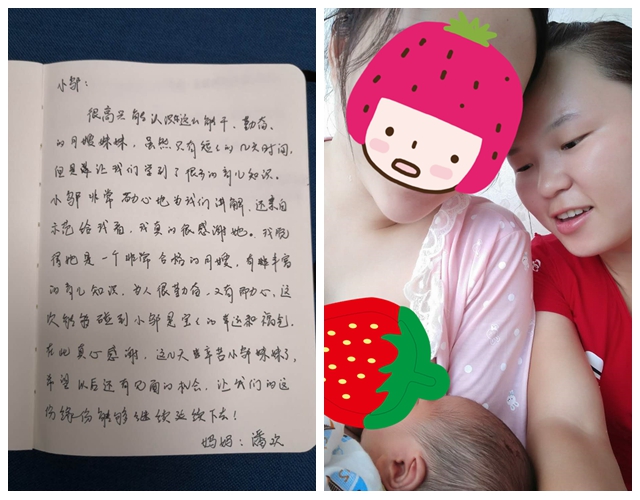 小邹：
很高兴能认识这么能干、勤奋、
的月嫂妹妹，虽然只有短短的几天时间，
但是却让我们学到了很多的育儿知识。
小邹非常耐心地为我们讲解，还亲自
示范给我看，我真的很感谢她。我觉
得她是一个非常合格的月嫂，有丰富
的育儿知识，为人很勤奋，又有耐心，这
次能够碰到小邹是宝宝的幸运和福气。
在此真心感谢，这几天辛苦小邹妹妹了，
希望以后还有见面的机会，让我们的这
份缘份能够继续延续下去！
妈妈：潘欢